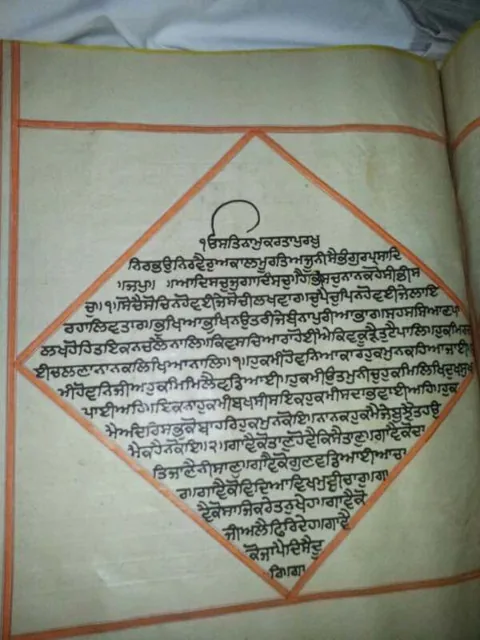 ੴਸਤਿਨਾਮੁਕਰਤਾਪੁਰਖੁ
ਨਿਰਭਉਨਿਰਵੈਰੁਅਕਾਲਮੂਰਤਿਅਜੂਨੀਸੈਭੰਗੁਰਪ੍ਰਸਾਦਿ
॥ਜਪੁ॥ ॥ਆਦਿਸਚੁਜੁਗਾਦਿਸਚੁਹੈਭੀਸਚੁਨਾਨਕਹੋਸੀਭੀਸ
ਚੁ॥੧॥ਸੋਚੈਸੋਚਿਨਹੋਵਈਜੇਸੋਚੀਲਖਵਾਰ॥ਚੁਪੈਚੁਪਿਨਹੋਵਈਜੇਲਾਇ
ਰਹਾਲਿਵਤਾਰ॥ਭੁਖਿਆਭੁਖਨਉਤਰੀਜੇਬੰਨਾਪੁਰੀਆਭਾਰ॥ਸਹਸਸਿਆਣਪਾ
ਲਖਹੋਹਿਤਇਕਨਚਲੈਨਾਲਿ॥ਕਿਵਸਚਿਆਰਾਹੋਈਐਕਿਵਕੂੜੈਤੁਟੈਪਾਲਿ॥ਹੁਕਮਿਰਜਾ
ਈਚਲਣਾਨਾਨਕਲਿਖਿਆਨਾਲਿ॥੧॥ਹੁਕਮੀਹੋਵਨਿਆਕਾਰਹੁਕਮੁਨਕਹਿਆਜਾਈ॥ਹੁਕ
ਮੀਹੋਵਨਿਜੀਅਹੁਕਮਿਮਿਲੈਵਡਿਆਈ॥ਹੁਕਮੀਉਤਮੁਨੀਚੁਹੁਕਮਿਲਿਖਿਦੁਖਸੁਖ
ਪਾਈਅਹਿ॥ਇਕਨਾਹੁਕਮੀਬਖਸੀਸਇਕਿਹੁਕਮੀਸਦਾਭਵਾਈਅਹਿ॥ਹੁਕ
ਮੈਅੰਦਰਿਸਭੁਕੋਬਾਹਰਿਹੁਕਮਨਕੋਇ॥ਨਾਨਕਹੁਕਮੈਜੇਬੁਝੈਤਹਉ
ਮੈਕਹੈਨਕੋਇ॥੨॥ਗਾਵੈਕੋਤਾਣੁਹੋਵੈਕਿਸੈਤਾਣੁ॥ਗਾਵੈਕੋਦਾ
ਤਿਜਾਣੈਨੀਸਾਣੁ॥ਗਾਵੈਕੋਗੁਣਵਡਿਆਈਆਚਾ
ਰ॥ਗਾਵੈਕੋਵਿਦਿਆਵਿਖਮੁਵੀਚਾਰੁ॥ਗਾ
ਵੈਕੋਸਾਜਿਕਰੇਤਨੁਖੇਹ॥ਗਾਵੈਕੋ
ਜੀਅਲੈਫਿਰਿਦੇਹ॥ਗਾਵੈ
ਕੋਜਾਪੈਦਿਸੈਦੂ
ਰਿ॥ਗਾ